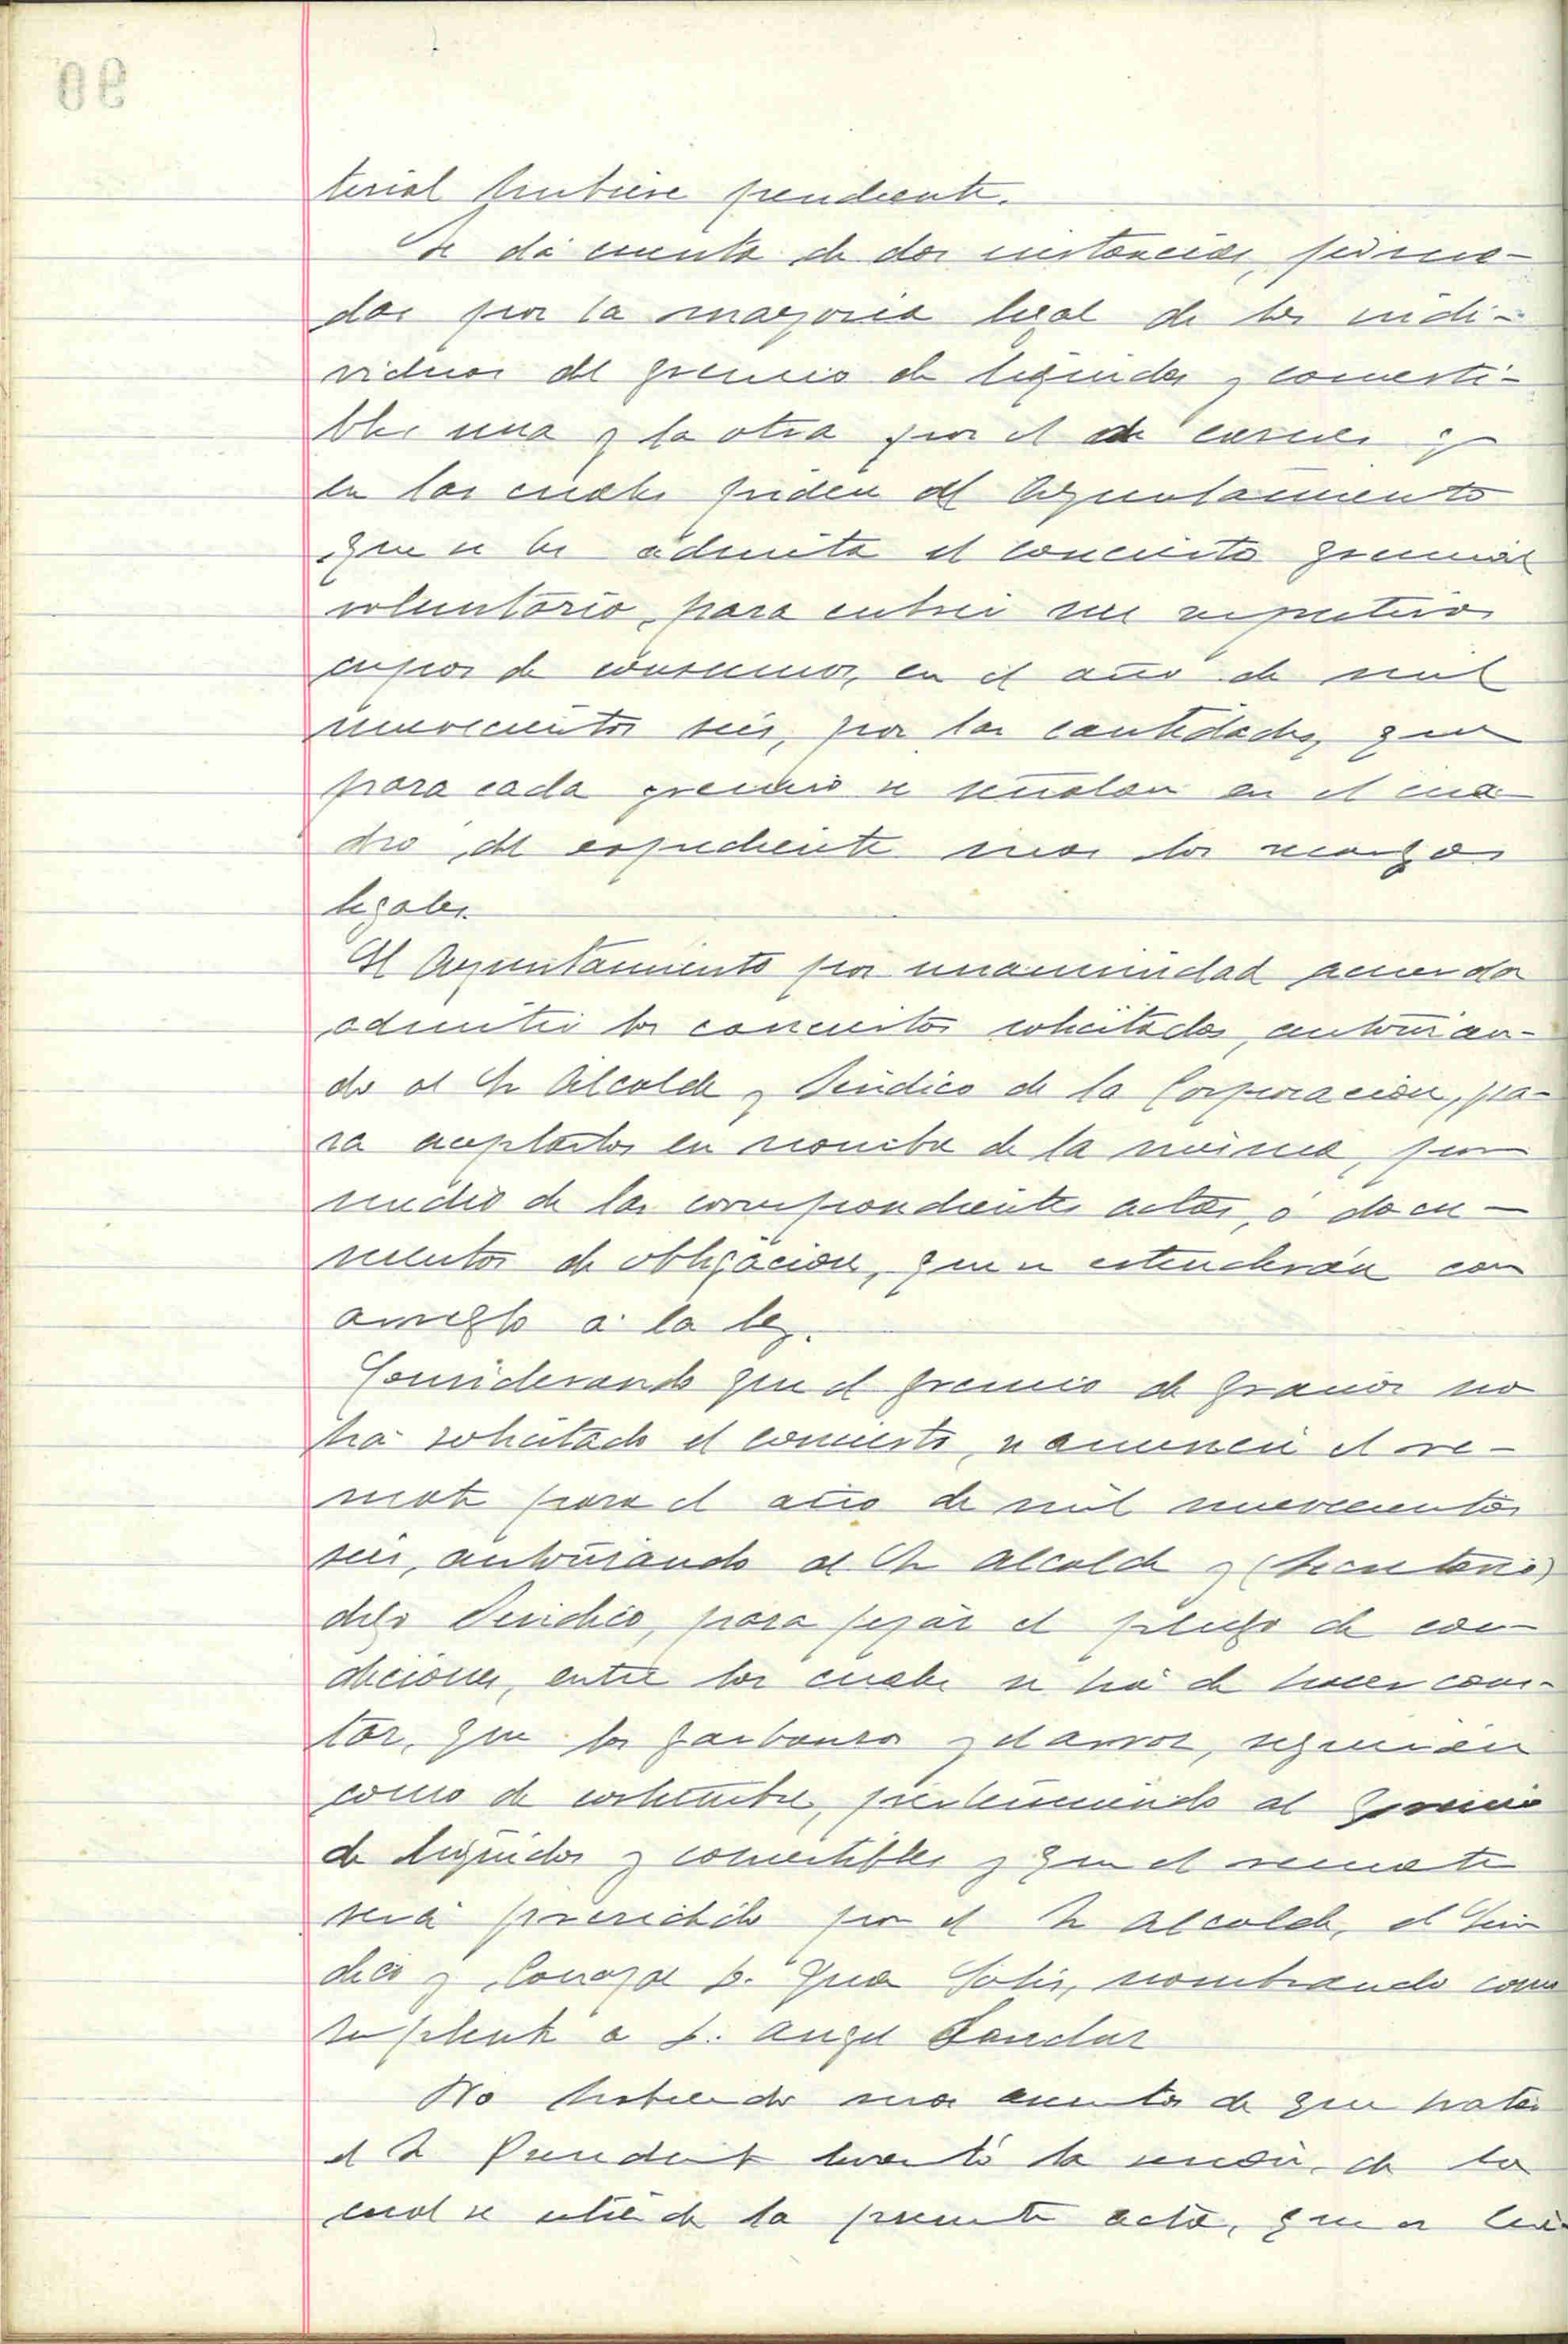 terial hubiere pendiente.
Se dá cuenta de dos instancias, firma-
das por la mayoria legal de los indi-
viduos del gremio de liquidos y comesti-
bles una y la otra por el de carnes y
en las cuales piden al Ayuntamiento
que se les admita el concierto gremial
voluntario, para cubrir sus respectivos
cupos de consumos, en el año de mil
novecientos seis, por las cantidades, que
para cada gremio se señalan en el cua-
dro, del expediente mas los recargos
legales.
El Ayuntamiento por unanimidad acuerda
admitir los conciertos solicitados, autorizan-
do al Sr Alcalde y Sindico de la Corporacion, pa-
ra aceptarlos en nombre de la misma, por
medio de las correspondientes actas, ó docu-
mentos de obligacion, que se estenderán con
arreglo á la ley.
Considerando que el gremio de granos no
há solicitado el concierto, se anuncie el re-
mate para el año de mil novecientos
seis, autorizando al Sr Alcalde y (Secretario)
digo Sindico, para fijar el pliego de con-
diciones, entre los cuales se há de hacer cons-
tar, que los garbanzos y el arroz, seguirán
como de costumbre, perteneciendo al gremio
de liquidos y comestibles y que el remate
será presidido por el Sr Alcalde, el Sin
dico y Concejal D. Solis, nombrando como
suplente a D. Angel Sanchez
No habiendo mas asuntos de que tratar
el Sr Presidente levantó la sesión, de la
cual se estiende la presente acta, que es leí-
90